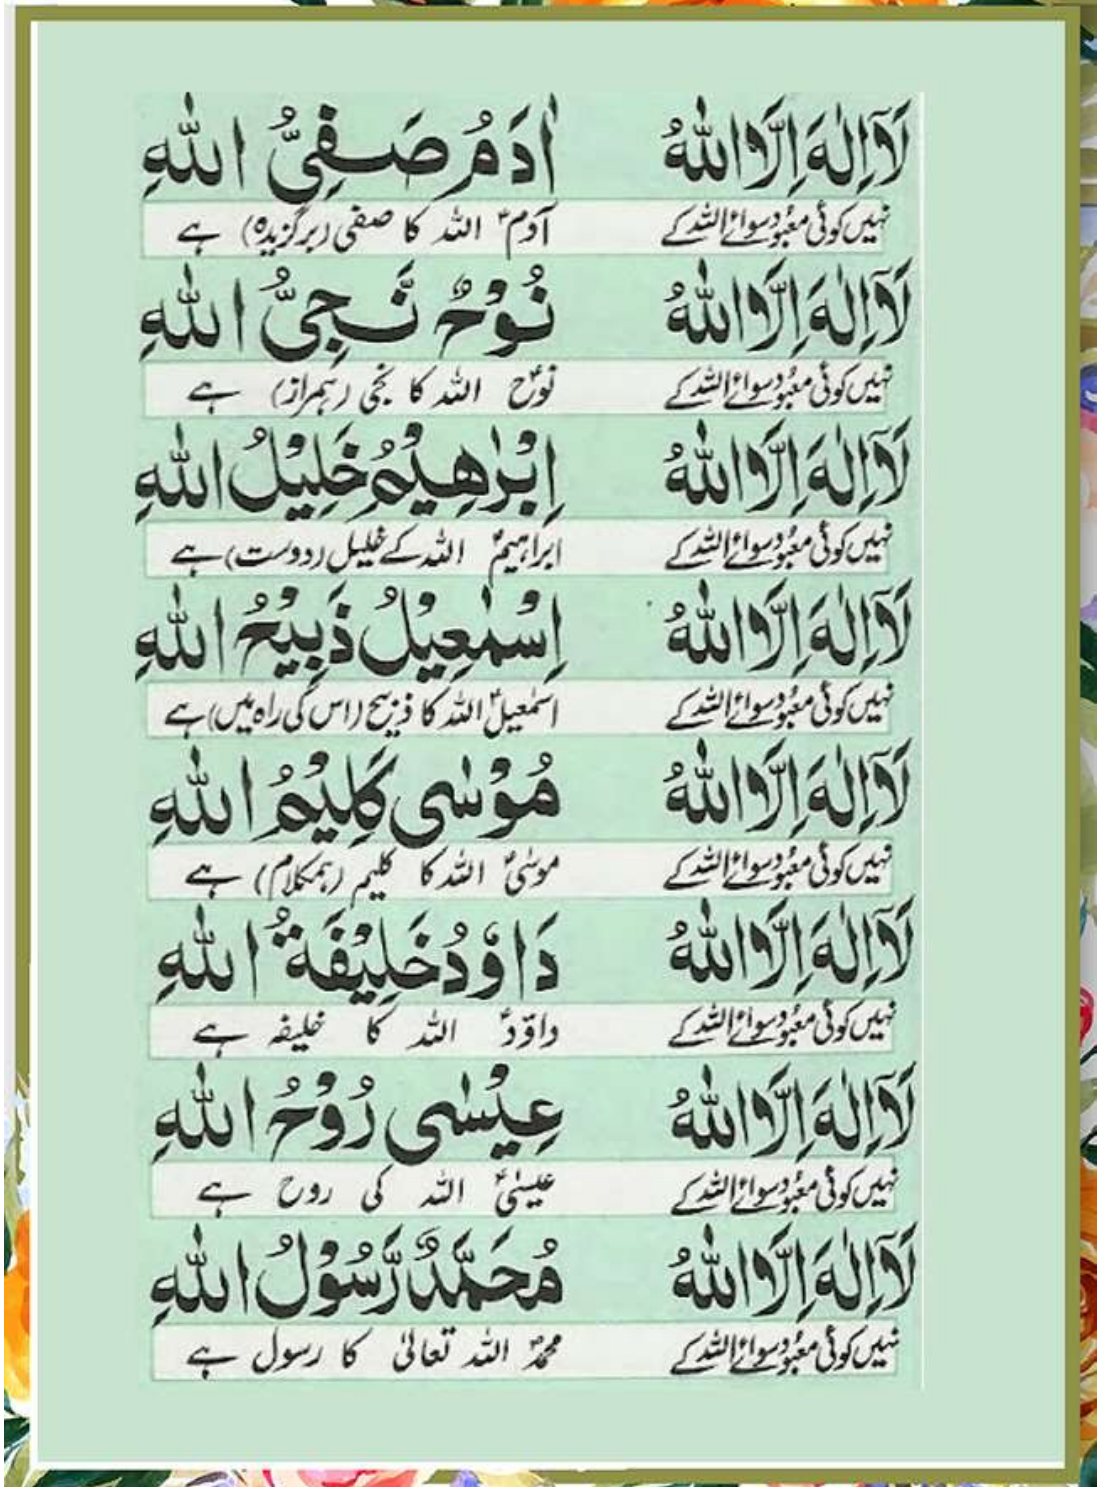 لَآ اِلٰهَ اِلَّا اللّٰهُ اٰدَمُ صَفِیُّ اللّٰهِ
نہیں کوئی معبود سوائے اللہ کے آدمؑ اللہ کا صفی (برگزیدہ) ہے
لَآ اِلٰهَ اِلَّا اللّٰهُ نُوْحٌ نَّجِیُّ اللّٰهِ
نہیں کوئی معبود سوائے اللہ کے نوحؑ اللہ کا نجی (ہمراز) ہے
لَآ اِلٰهَ اِلَّا اللّٰهُ اِبْرٰهِیْمُ خَلِیْلُ اللّٰهِ
نہیں کوئی معبود سوائے اللہ کے ابراہیمؑ اللہ کے خلیل (دوست) ہے
لَآ اِلٰهَ اِلَّا اللّٰهُ اِسْمٰعِیْلُ ذَبِیْحُ اللّٰهِ
نہیں کوئی معبود سوائے اللہ کے اسمٰعیلؑ اللہ کا ذبیح (اس کی راہ میں) ہے
لَآ اِلٰهَ اِلَّا اللّٰهُ مُوْسٰی کَلِیْمُ اللّٰهِ
نہیں کوئی معبود سوائے اللہ کے موسٰیؑ اللہ کا کلیم (ہمکلام) ہے
لَآ اِلٰهَ اِلَّا اللّٰهُ دَاوٗدُ خَلِیْفَةُ اللّٰهِ
نہیں کوئی معبود سوائے اللہ کے داؤدؑ اللہ کا خلیفہ ہے
لَآ اِلٰهَ اِلَّا اللّٰهُ عِیْسٰی رُوْحُ اللّٰهِ
نہیں کوئی معبود سوائے اللہ کے عیسٰیؑ اللہ کی روح ہے
لَآ اِلٰهَ اِلَّا اللّٰهُ مُحَمَّدٌ رَّسُوْلُ اللّٰهِ
نہیں کوئی معبود سوائے اللہ کے محمدؐ اللہ تعالیٰ کا رسول ہے